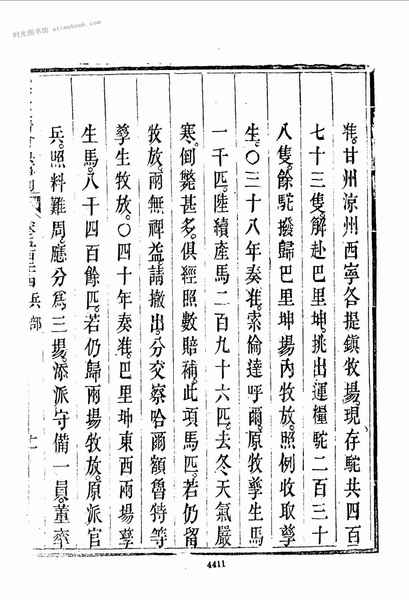 准。甘州涼州西寧各提鎮牧場。現存駝共四百
七十三隻。解赴巴里坤。挑出運糧駝二百三十
八隻。餘駝撥歸巴里坤場內牧放。照例收取孳
生。〇三十八年奏准。索倫達呼爾。原牧孳生馬
一千匹。陸續產馬二百九十六匹。去冬天氣嚴
寒。倒斃甚多。俱經照數賠補。此項馬匹。若仍留
牧放。兩無裨益。請撤出。分交察哈爾額魯特等
孳生牧放。〇四十年奏准。巴里坤東西兩場孳
生馬。八千四百餘匹。若仍歸兩場牧放。原派官
兵。照料難周。應分爲三場。添派守備一員。董率
兵部
4411